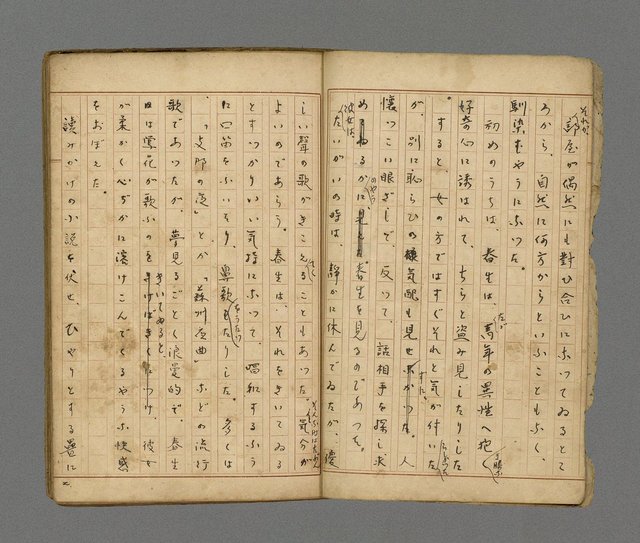 それが、
部屋が偶然にも對ひ合ひになつてゐるとこ
ろから、自然に何方からといふこともなく、
馴染むやうになつた。
初めのうちは、春生は、青年の異性へ抱く
好奇の心に誘はれて、ちらと盗み見したりした
が、
すると、女の方ではすぐそれと気が付いた
が、別に恥らひの様気配も見せなかつた。人
懐つこい眼ざしで、反つて、話相手を探し求
めるかのやうに春生を見るのであつた。
彼女は、
たいがいの時は、静かに休んでゐたが、優
しい聲の歌がきこえることもあつた。気分が
よいのであらう。春生は、それをきいてゐる
とすつかりいい気持になつて、唱和するふう
に口笛をふいたり、鼻歌をうたつたりした。多くは
「支那の夜」とか「蘇州夜曲」などの流行
歌であつたが、夢見るごとく浪曼的で、春生
は鶯花が歌ふのをきいてゐると、彼女
が柔かく心しづかに溶けこんでくるやうな快感
をおぼえた。
読みかけの小説を伏せ、ひやりとする畳に